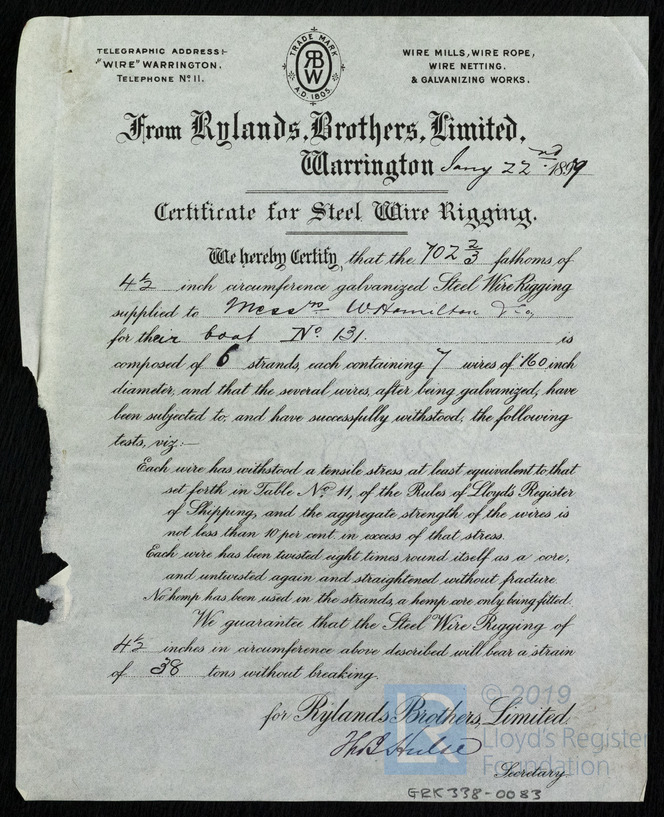 TELEGRAPHIC ADDRESS:-
"WIRE" WARRINGTON.
TELEPHONE No 11.
TRADE MARK
RB
W
A.D. 1805.
WIRE MILLS, WIRE ROPE,
WIRE NETTING.
& GALVANIZING WORKS.
From Rylands, Brothers, Limited,
Warrington Jany 22nd 1899
Certificate for Steel Wire Rigging.
We hereby Certify that the 702 2/3 fathoms of
4½ inch circumference galvanized Steel Wire Rigging
supplied to Messrs W Hamilton & Co,
for their boat No 131. is
composed of 6 strands, each containing 7 wires of ·160 inch
diameter, and that the several wires, after being galvanized, have
been subjected to, and have successfully withstood, the following
tests, viz:—
Each wire has withstood a tensile stress at least equivalent to that
set forth in Table No 11, of the Rules of Lloyd's Register
of Shipping, and the aggregate strength of the wires is
not less than 10 per cent in excess of that stress.
Each wire has been twisted eight times round itself as a core,
and untwisted again and straightened without fracture.
No hemp has been used in the strands, a hemp core only being fitted.
We guarantee that the Steel Wire Rigging of
4½ inches in circumference above described will bear a strain
of 38 tons without breaking.
for Rylands Brothers, Limited.
Hulse
Secretary.
LR
© 2019
Lloyd's Register
Foundation
GRK338-0083